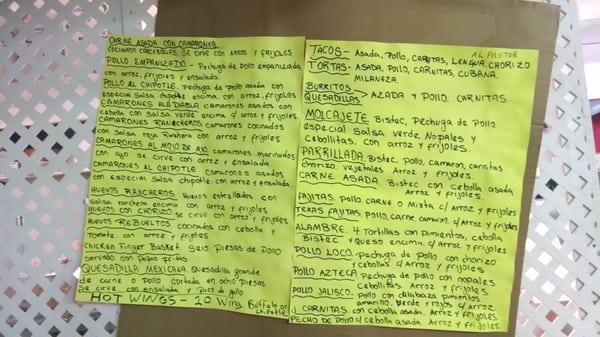 CARNE ASADA CON CAMARONES.
COCINADO CON CEBOLLAS, SE CIRVE CON ARROS Y FRIJOLES.
POLLO EMPANIZADO - Pechuga de Pollo empanizada
con arroz, frijoles y ensalada.
POLLO AL CHIPOTLE. Pechuga de Pollo asada con
especial Salsa chipotle encima. con arroz, frijoles
CAMARONES ALA DABLA camarones asados con
cebolla con salsa verde encima c/ arroz y frijoles
CAMARONES RANCHEROS camarones cocinados
con salsa roja Ranchera con arroz y frijoles.
CAMARONES AL MOJO DE AJO camarones marinados
con ajo se cirve con arroz y ensalada
CAMARONES AL CHIPOTLE camarones asados
con especial salsa chipotle con arroz y ensalada.
HUEVOS RANCHEROS. Huevos estrellados con
salsa ranchera encima con arroz y frijoles
HUEVOS CON CHORIZO se cirve con arroz y frijoles
HUEVOS REBUELTOS cocinados con cebolla y
tomate. con arroz y frijoles
Chicken Finger Basket. Seis Piesas de Pollo
servido con Papas Fritas
QUESADILLA MEXICANA Quesadilla grande
de carne o Pollo cortada en ocho piesas
Se cirve con ensalada y Pico de gallo.
HOT WINGS - 10 Wing Buffalo or
chipotle
AL PASTOR
TACOS - Asada, Pollo, CARNITAS, LENGUA, CHORIZO
TORTAS - ASADA, POLLO, CARNITAS, CUBANA.
MILANEZA.
BURRITOS
QUESADILLAS > AZADA Y POLLO, CARNITAS
MOLCAJETE. Bistec, Pechuga de Pollo
especial Salsa verde, Nopales y
Cebollitas. con arroz y frijoles.
PARRILLADA. Bistec, Pollo, camaron, carnitas
chorizo, vegetales Arroz y frijoles.
CARNE ASADA Bistec con Cebolla asada
Arroz y frijoles.
FAJITAS. Pollo, carne o Mixta c/ Arroz y Frijoles
TEXAS FAJITAS. Pollo, carne, camaron, c/ Arroz y Frijoles
ALAMBRE. 4 Tortillas con pimientos, cebolla
Bistec y Queso encima, c/ Arroz y frijoles.
POLLO LOCO. Pechuga de Pollo con chorizo
cebollas c/ Arroz y Frijoles
POLLO AZTECA. Pechuga de Pollo con nopales
Cebollitas. Arroz y frijoles.
POLLO JALISCO. Pollo con calabaza pimientos
amarillo, verde y rojos c/ arroz
CARNITAS. con cebolla asada, Arroz y Frijoles.
PECHO DE POLLO c/ cebolla asada. Arroz y Frijoles.